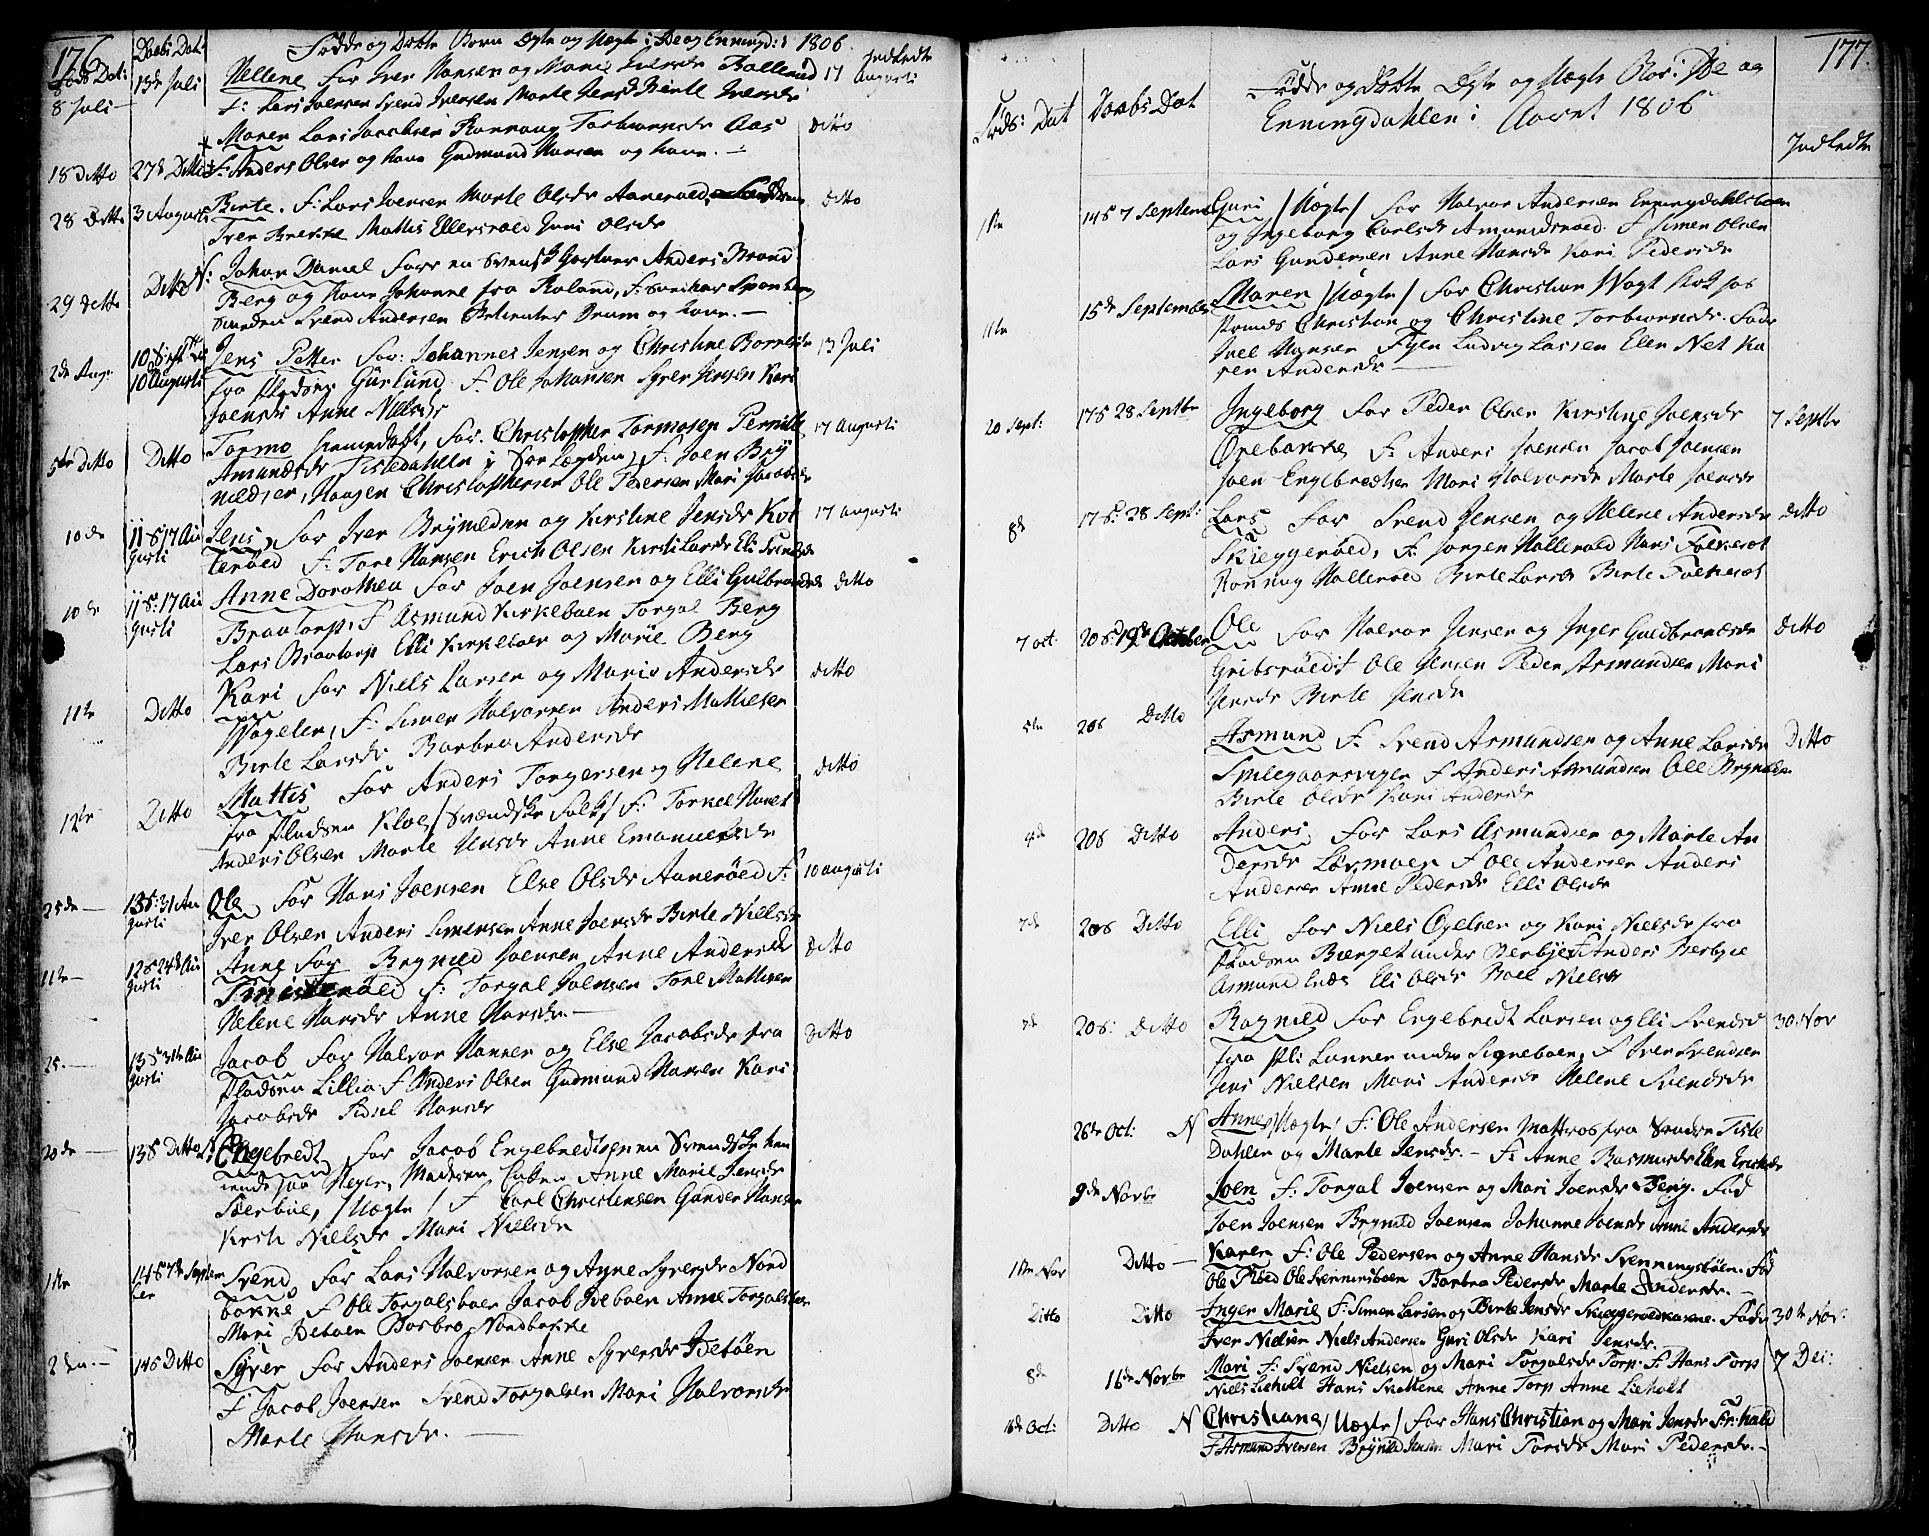 176
Daabs Dat:
Fødde og Døbte Børn Ægte og Uægte i Ide og Enningd: 1806
Jndledte
Føds Dat:
8 Juli — 13de Juli Hellene For Iver Hansen og Marie Bollerud 17 Augusti
F: Lars Joensen Svend Iversen Marte Jensdr Birte Iversdr
Maren Lars Jacobsen Ronnaug Torbiørnsdr Aas ditto
18 ditto 27de Ditto F: Anders Olsen og kone Gudmund Hansen og kone. —
28 Ditto 3 Augusti Birte. F: Lars Iversen Marte Olsdr Aanerøed ditto
Iver Brekke Mattis Ellersrøed Guri Olsdr
29 ditto Ditto N: Johan Daniel Forr en Svensk Gartner Anders Brand
Berg og kone Johanne fra Roland, F:
Svend Andersen Betienter Drum og kone. —
2de Aug: 10 Augusti Jens Petter For: Johannes Jensen og Christine 13 Juli
fra Pladsen F: Ole Johansen Syver Jensen Kari
Joensdr Anne Nielsdr
5te Ditto Ditto Tormo hiemedøbt, For. Christopher Tormosen Pernille 17 Augusti
Amundsdr Tistedahlen F: Joen Bry
nildsen, Haagen Christophersen Ole Pedersen Mari Jacobsdr
10de 11 S: 17 Au
gusti Jens, For Iver Brynildsen og Kirstine Jensdr Kot 17 augusti
terøed F: Tore Hansen Erich Olsen Kirsti Larsdr Eli Svendsdr
10de 11 S: 17 Au
gusti Anne Dorothea For Joen Joensen og Elli Gulbrandsdr ditto
Braatorp, F Asmund Kirkeboen Torgal Berg
Lars Braatorp Elli Kirkeboen og Marie Berg
11te Ditto Kari For Niels Larsen og Maria Andersdr ditto
Wagelen, F: Simen Halvorsen Anders Mathiesen
Birte Larsdr Barbra Andersdr
12te Ditto Mattis For Anders Torgersen og Helene ditto
fra Pladsen Kloe /Svendske Folk/ F: Torkel
Anders Olsen Marte Jensdr Anne Emanuelsdr
25de — 13 S: 31 Au
gusti Ole For Hans Joensen Else Olsdr Aanerøed F: 10 augusti
Iver Olsen Anders Simensen Anne Joensdr Birte Nielsdr
11te — 12 S 24de Au
gusti Anne For Brynild Joensen Anne Andersdr ditto
F: Torgal Joensen Tore Mathisen
Helene Hansdr Anne Hansdr. —
25. — 13 S 31te Au
gusti Jacob For Halvor Hansen og Else Jacobsdr fra ditto
Pladsen Lillia F Anders Olsen Gudmund Hansen Kari
Jacobsdr Sidsel Hansdr
20de — 13 S Ditto N: Engebredt For Jacob Engebredtsen en Svendsk hen
Anne Marie Jensdr
Bierbue, /Uægte/ F Carl Christensen Gunder Hansen
Kirsti Nielsdr Mari Nielsdr
1te 14 S 7de Septem
ber Svend For Lars Halvorsen og Anne Syversdr Nord
bakke F Ole Torgalsboen Jacob Ideboen Anne Torgalsboen
Mari Ideboen Barbro Nordbakke
2den. — 14 S Ditto Syver For Anders Joensen Anne Syversdr Idebøen
F Jacob Joensen Svend Torgalsen Mari Halvorsdr
Marte Hansdr. —
177.
Føds: Dat Daabs Dat
Fødde og Døbte Ægte og Uægte Børn i Ide og
Enningdahlen i Aaret 1806
Jndledte
1te 14 S 7 Septembr Guri /Uægte/ For Halvor Andersen Enningdahlsboen
og Ingeborg Carlsdr Amundsrøed F Simen Olsen
Lars Gundersen Anne Hansdr Kari Pedersdr
11te 15de September Maren /Uægte/ For Christian Wogt hos
Christian og Christine Torbiørnsdr. Fadr
Juel Hansen Fyen Ludvig Lassen Elen Net Ka
ren Andersdr —
20 Sept: 17 S 28 Septbr Ingeborg For Peder Olsen Kirstine Joensdr 7 Septbr
Opebakke F: Anders Joensen Jacob Joensen
Joen Englbredtsen Mari Halvorsdr Marte Joensdr
8de 17 S: 28 Sept: Lars For Svend Jensen og Helene Andersdr ditto
Skieggerøed, F: Jørgen Hallerøed Hans Folkerøt
Ronnug Hallerøed Birte Larsdr Birte Folkerøt
7 oct 20 S October Ole For Halvor Jensen og Inger Guldbrandsdr ditto
Gribsrøed F Ole Jensen Peder Asmundsen Mari
Jensdr Birte Jensdr
5te 20 S Ditto Asmund F: Svend Asmundsen og Anne Larsdr Ditto
Smlegaarsvigen F Anders Asmundsen Ole Brynildsen
Birte Olsdr Kari Andersdr
4de 20 S Ditto Anders For Lars Asmundsen og Marte An
dersdr Løvmoen F Ole Andersen Anders
Andersen Anne Pedersdr Elli Olsdr
7de 20 S Ditto Elli For Niels Ogelsen og Kari Nielsdr fra
Pladsen Bierget under Berbye F Anders Berbye
Asmund Elli Olsdr Boel Nielsdr
7de 20 S: Ditto Ragnild For Engebredt Larsen og Eli Svendsd 30 Nov
fra Pl: Lunnen under Signeboen, F Iver Svendsen
Jens Nielsen Mari Andersdr Helene Svendsdr
26de Oct: N Anne /Uægte/ F: Ole Andersen Mattros fra Tiste
Dahlen og Marte Jensdr. — F: Anne Rasmusdr Elen Erichsdr
9de Novbr Joen F: Torgal Joensen og Mari Joensdr Berg. Fad
Joen Joensen Brynild Joensen Johanne Joensdr Anne Andersdr
1te Nov Ditto — Karen F: Ole Pedersen og Anne Hansdr Svenningsbøen. Fad
Ole Ole Svenningsboen Barbra Pedersdr Marte Andersdr. —
Ditto Ditto Inger Marie F: Simen Larsen og Birte Jensdr Skieggerødkasene. Fadr 30te Nov:
Iver Nielsen Niels Andersen Guri Olsdr Kari Jensdr.
8de 16de Novbr Mari F: Svend Nielsen og Mari Torgalsdr Torp. F: Hans Torp 7 Dec:
Niels Lieholt Hans Skottene Anne Torp Anne Lieholt
Oct: Ditto N Christiane /Uægte/ For Hans Christian og Mari Jensdr Fr:hald
F Asmund Iversen Brynild Jensen Mari Torsdr Mari Pedersdr. —